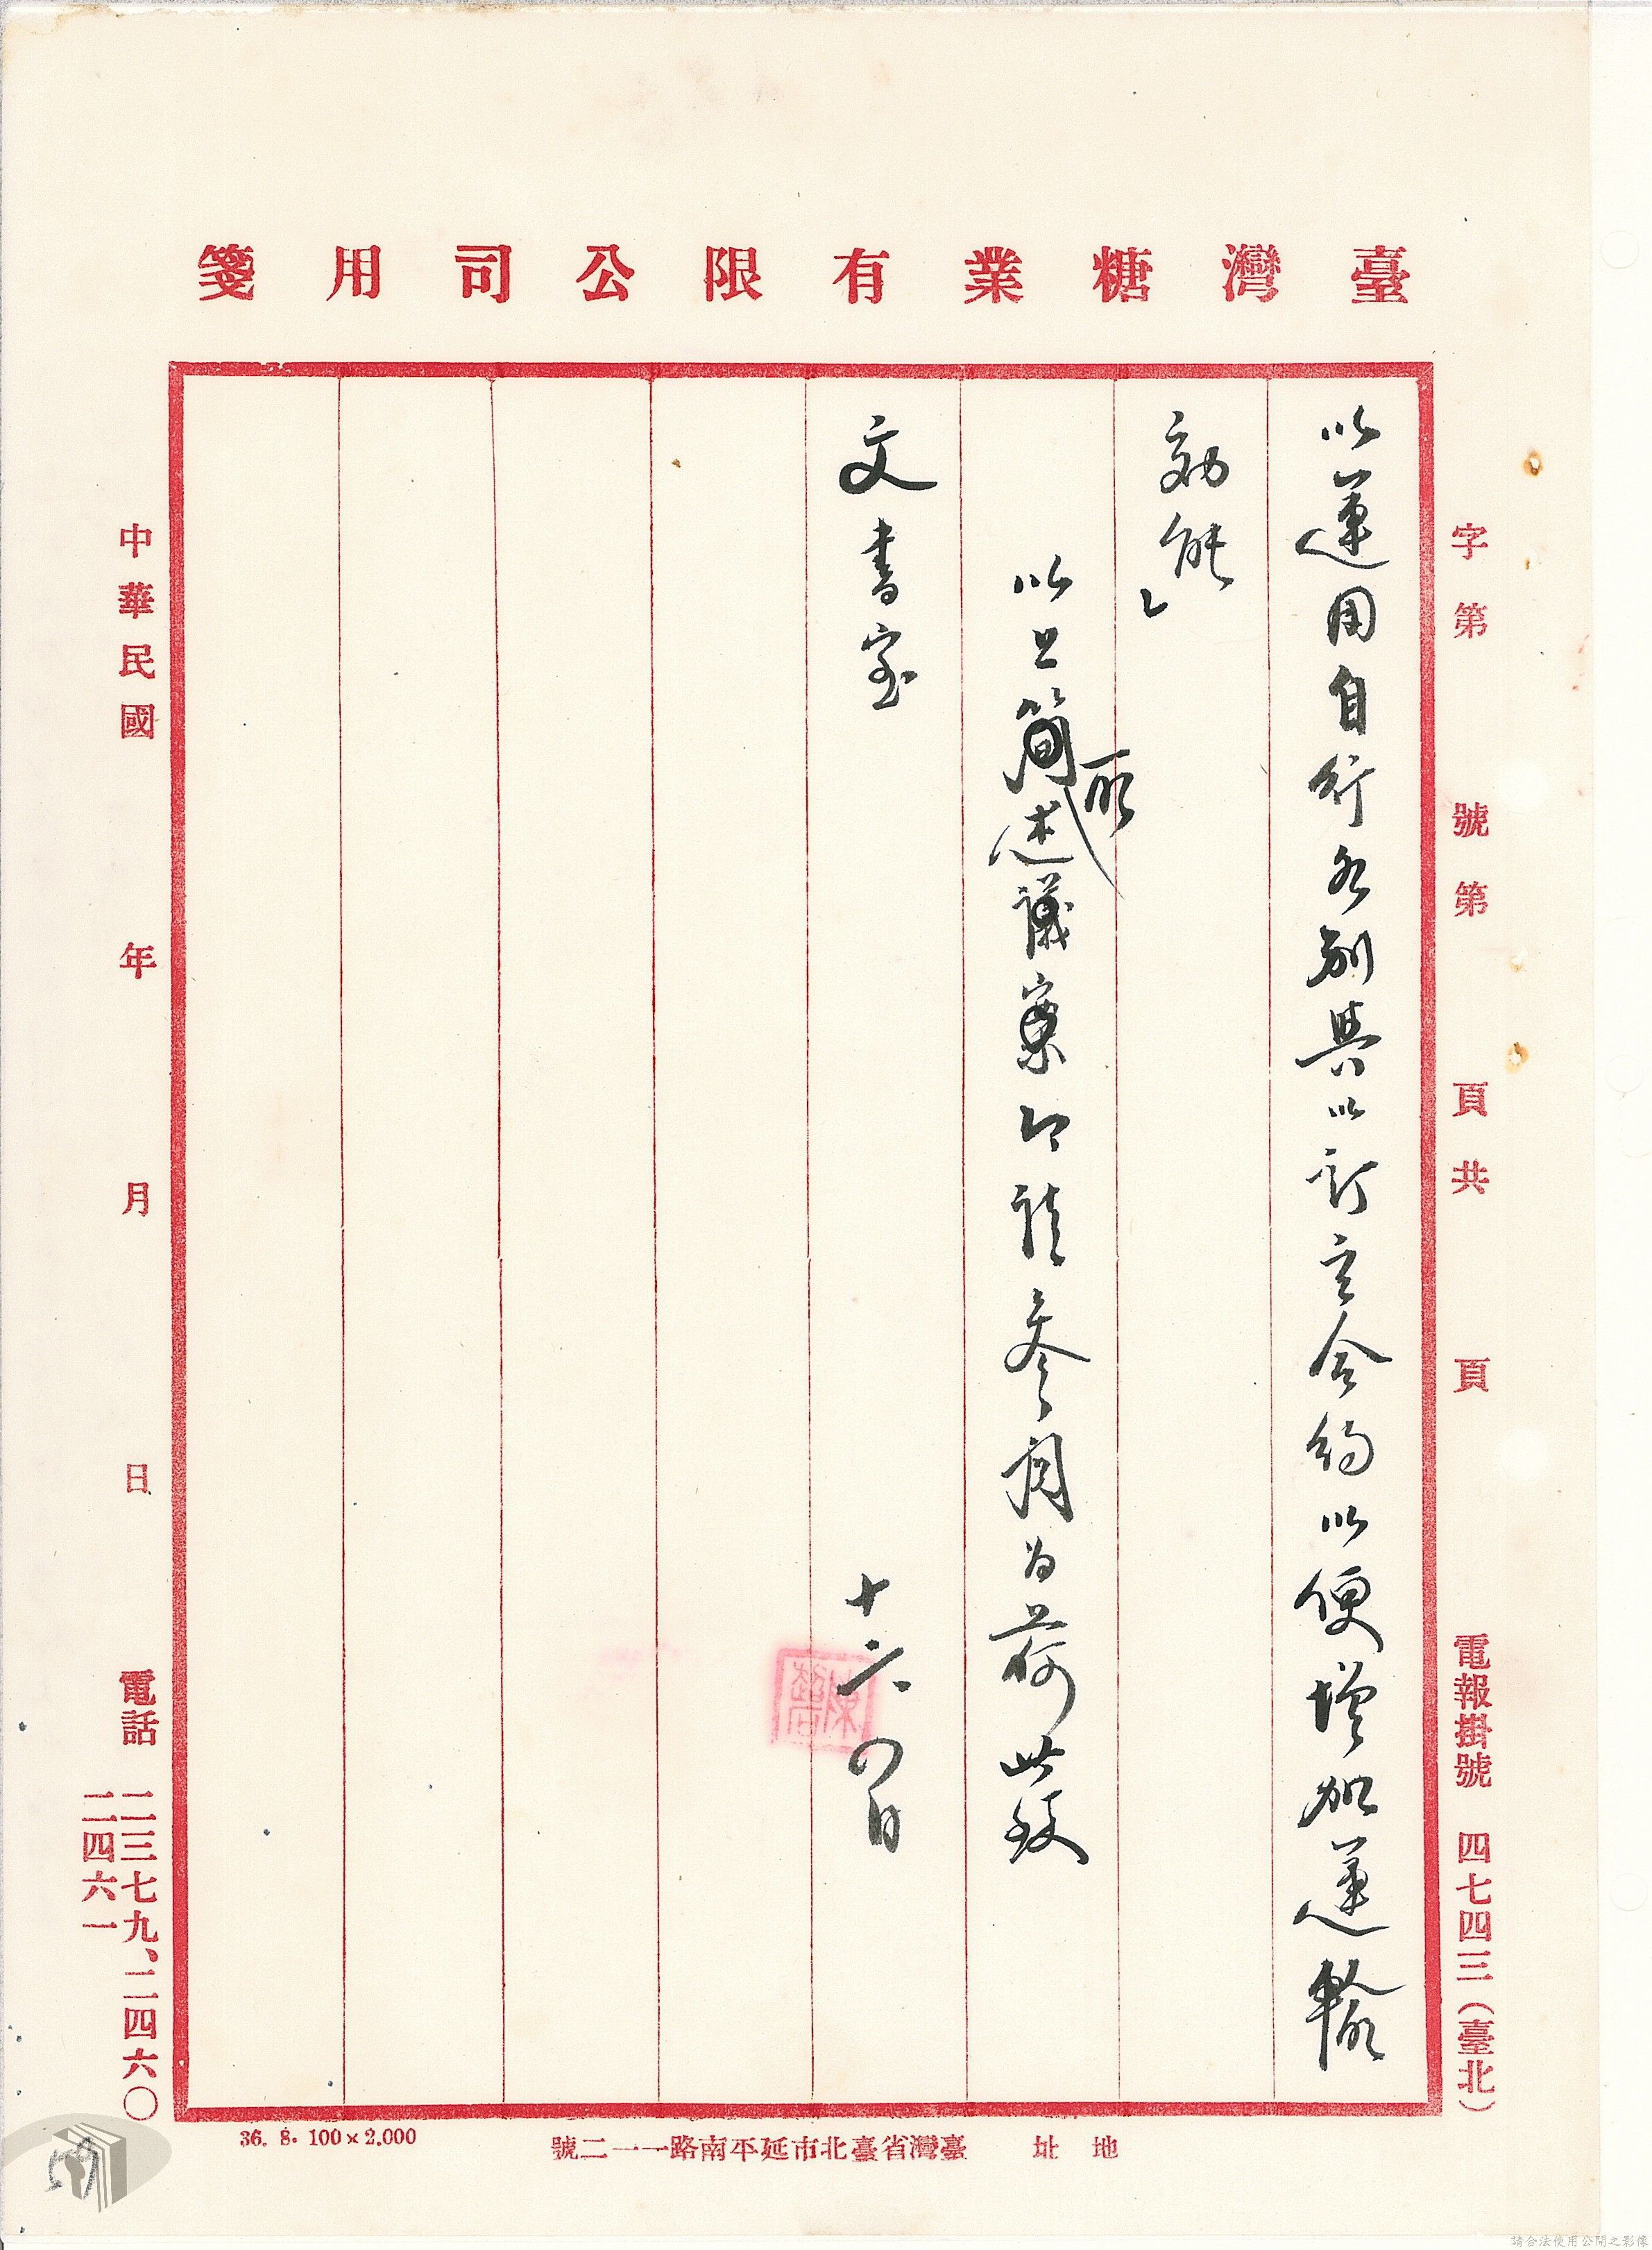 臺灣糖業有限公司用箋
字第　號第　頁共　頁　電報掛號　四七四三(臺北)
以運用自行各別與以訂立合約以便增加運輸
効能」
以上簡所述議案即請參閱為荷此致
文書室
十六、〇日
中華民國　年　月　日　電話　二三七九、二四六〇
二四六一
36. 8. 100×2,000
地址　臺灣省臺北市延平南路一一二號
請合法使用公開之影像